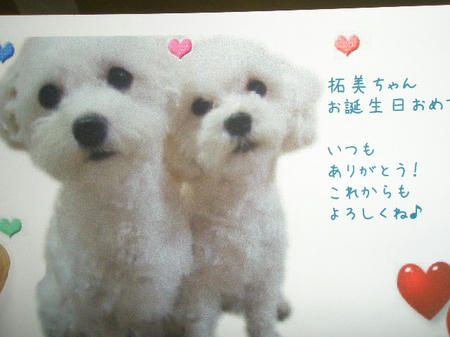 拓美ちゃん
お誕生日おめ
いつも
ありがとう!
これからも
よろしくね♪